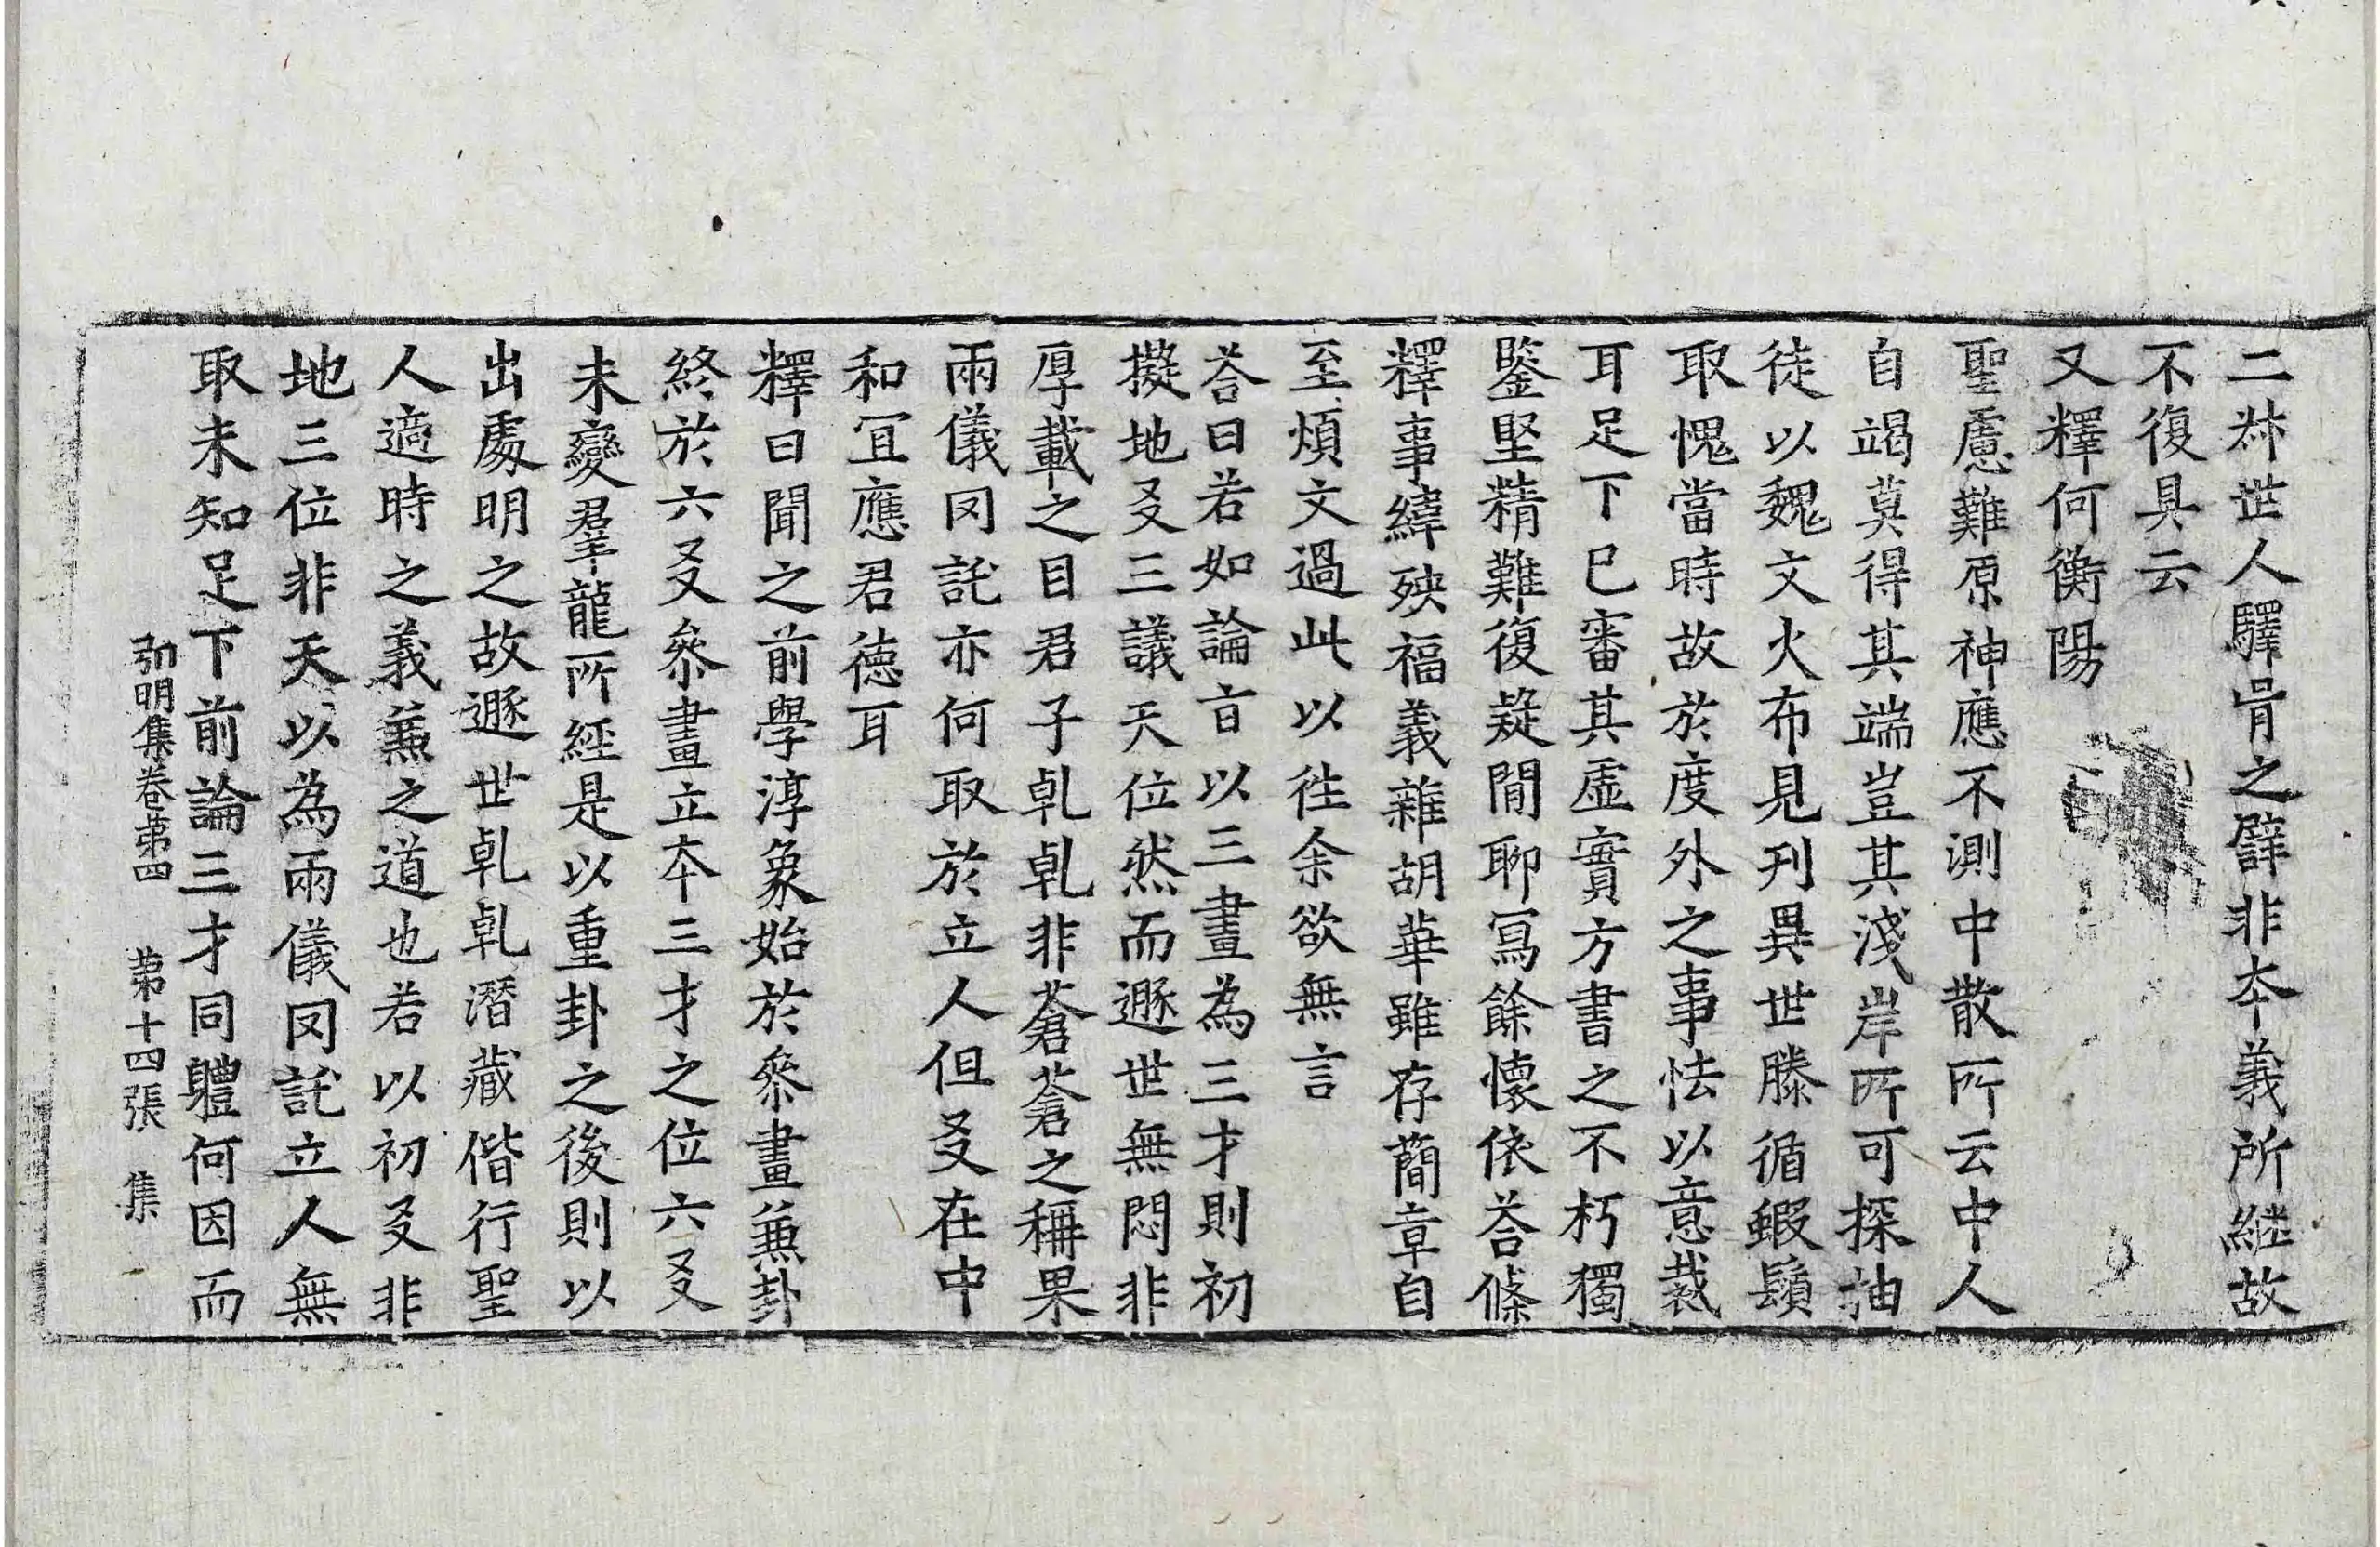 二叔世人驛胥之譬非本義所継故
不復具云
又釋何衡陽
聖慮難原神應不測中散所云中人
自竭莫得其端豈其淺岸所可探抽
徒以魏文火布見刊異世滕循蝦鬚
取愧當時故於度外之事怯以意裁
耳足下已審其虛實方書之不朽獨
鑒堅精難復疑閒聊寫餘懷依荅條
釋事緯殃福義雜胡華雖存蕳章自
至煩文過此以往余欲無言
荅曰若如論言以三畫為三才則初
擬地爻三議天位然而遯世無悶非
厚載之目君子乹乹非蒼蒼之稱果
兩儀罔託亦何取於立人但爻在中
和冝應君德耳
釋曰聞之前學淳象始於叅畫蒹卦
終於六爻叅畫立本三才之位六爻
未變羣龍所經是以重卦之後則以
出處明之故遯世乹乹潛藏偕行聖
人適時之義蒹之道也若以初爻非
地三位非天以為兩儀罔託立人無
取未知足下前論三才同軆何因而
弘明集卷苐四　苐十四張　集